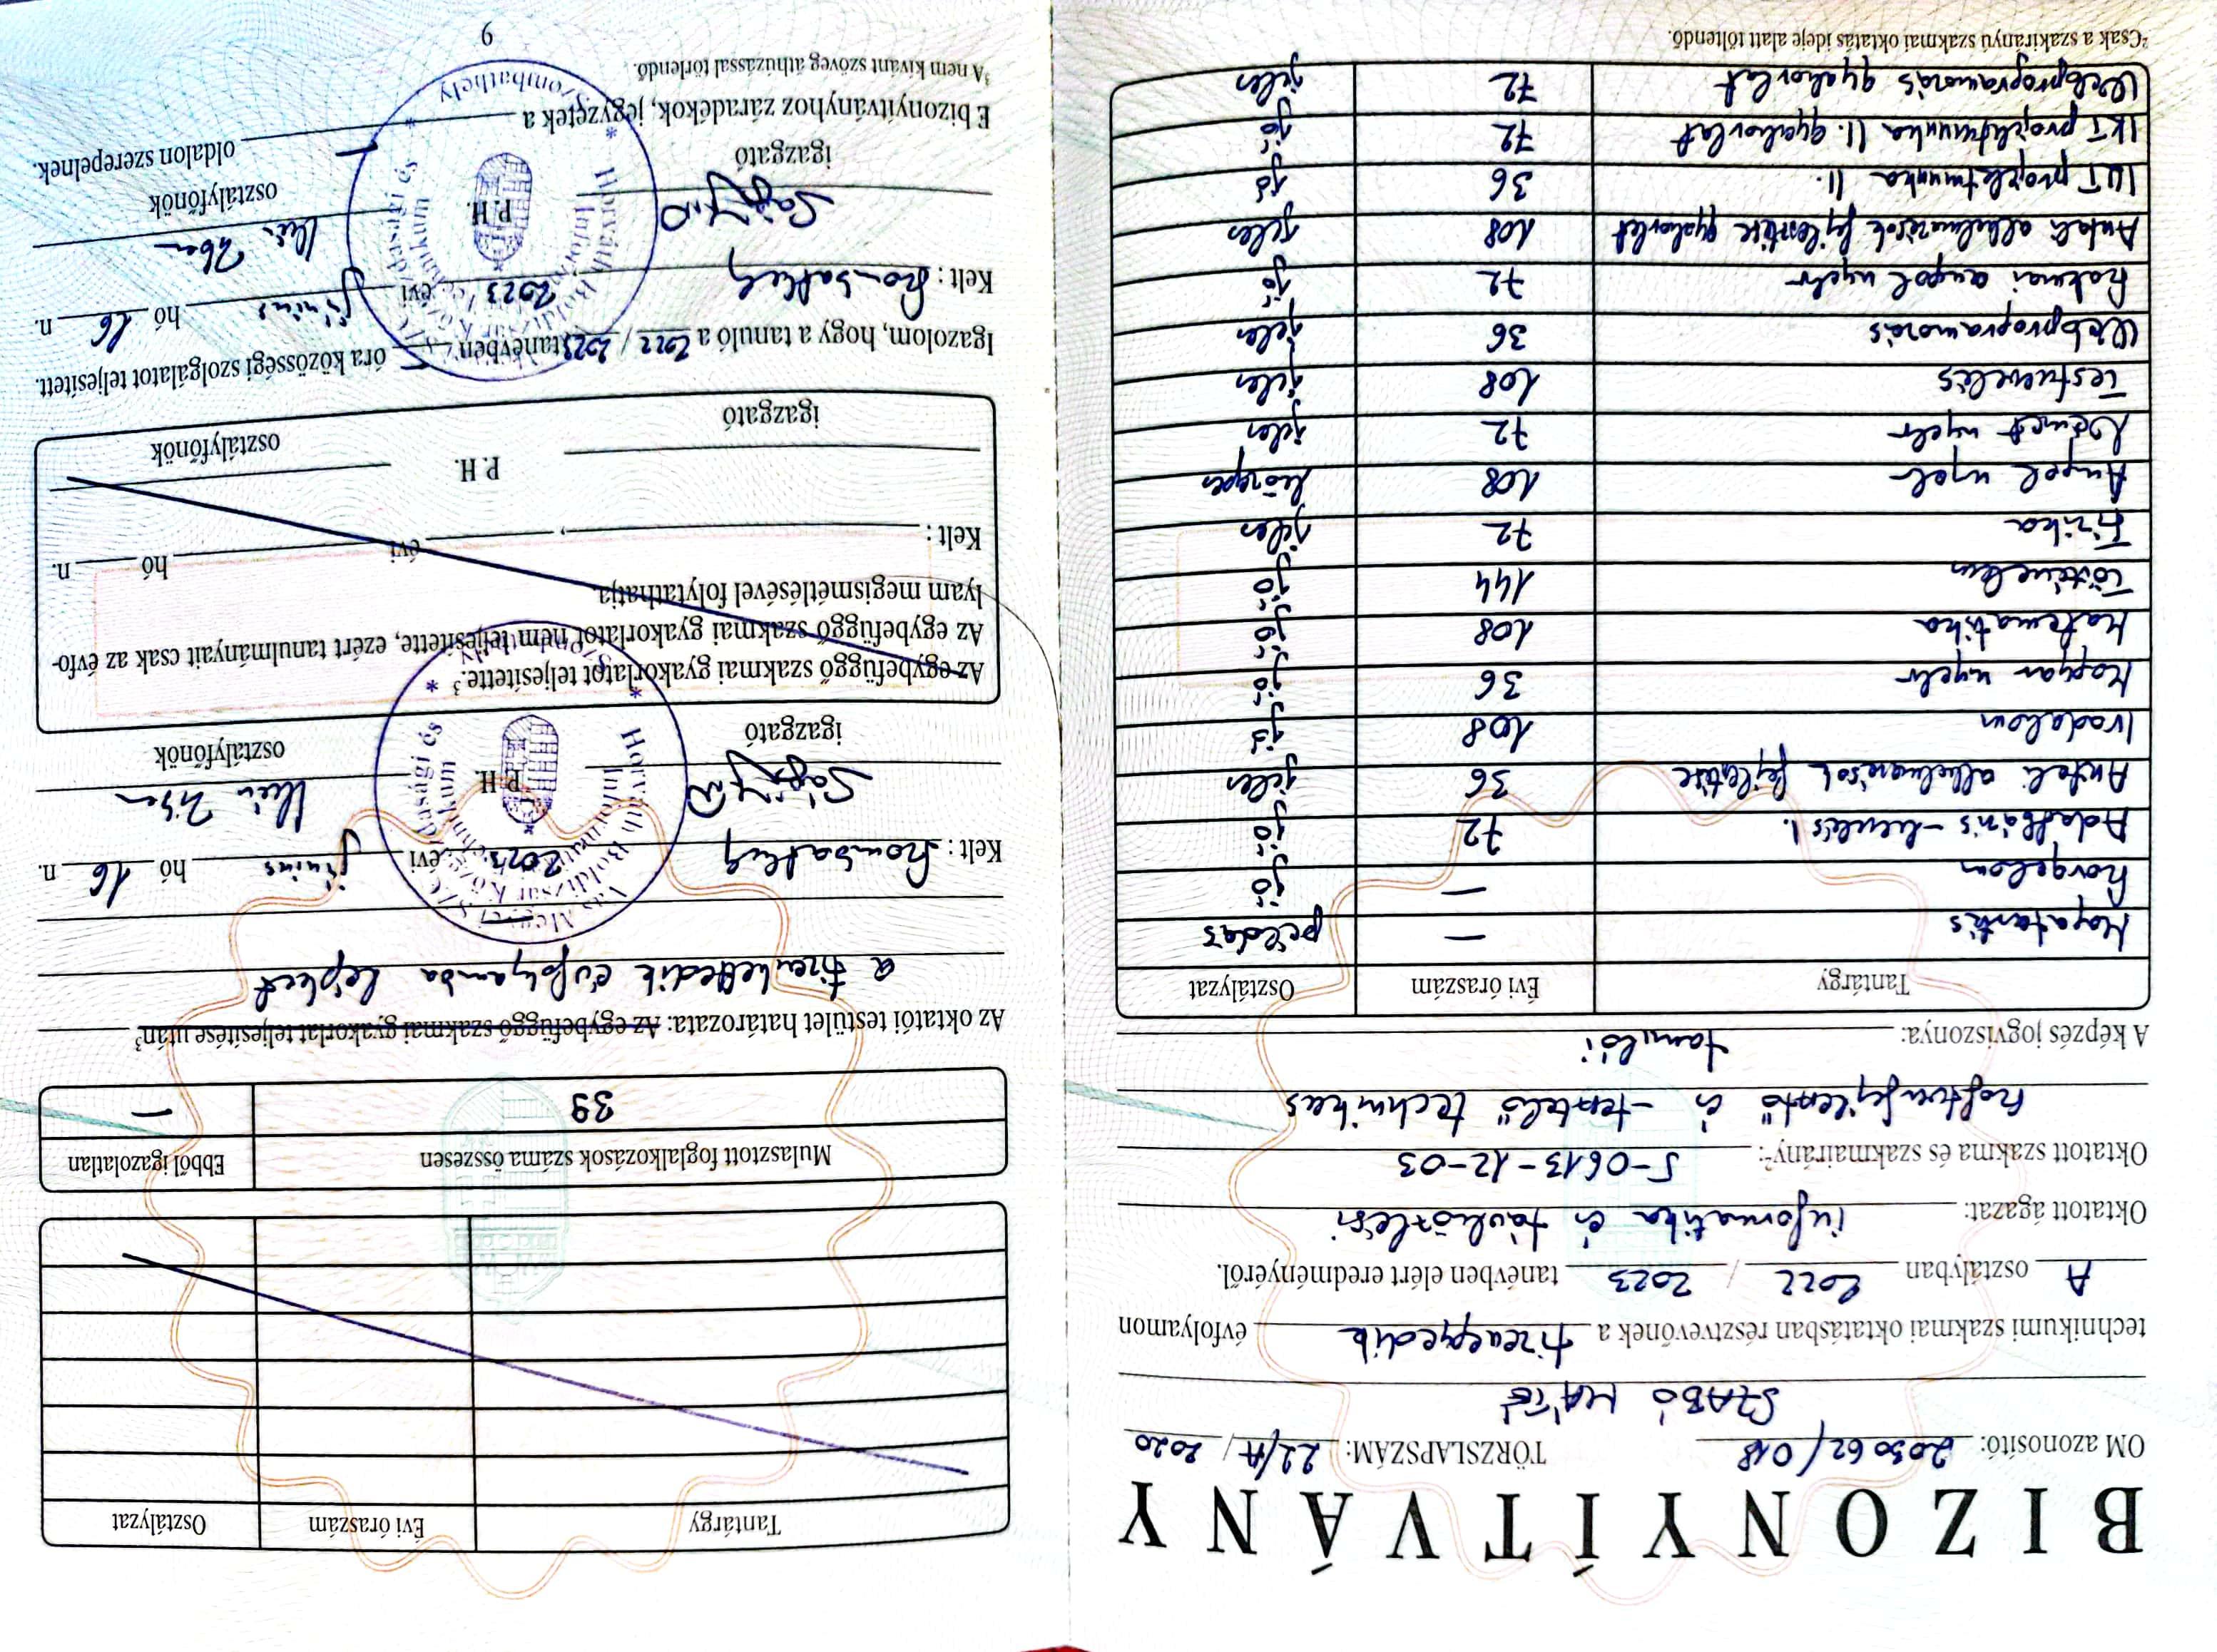 BIZONYÍTVÁNY
OM azonosító: 203062/018 TÖRZSLAPSZÁM: 22/A/2020
SZABÓ MÁTÉ
technikumi szakmai oktatásban résztvevőnek a tizenegyedik évfolyamon
A osztályban 2022 / 2023 tanévben elért eredményéről.
Oktatott ágazat: informatika és távközlési
Oktatott szakma és szakmairány²: 5-0613-12-03
szoftverfejlesztő és -tesztelő technikus
A képzés jogviszonya: tanulói
Tantárgy Évi óraszám Osztályzat
Magatartás — példás
Szorgalom — jó
Adatbázis-kezelés I. 72 jó
Asztali alkalmazások fejlesztése 36 jeles
Irodalom 108 jó
Magyar nyelv 36 jó
Matematika 108 jó
Történelem 144 jó
Fizika 72 jeles
Angol nyelv 108 közepes
Német nyelv 72 jeles
Testnevelés 108 jeles
Webprogramozás 36 jeles
Szakmai angol nyelv 72 jó
Asztali alkalmazások fejlesztése gyakorlat 108 jeles
IKT projektmunka II. 36 jó
IKT projektmunka II. gyakorlat 72 jó
Webprogramozás gyakorlat 72 jeles
²Csak a szakirányú szakmai oktatás ideje alatt töltendő.
Tantárgy Évi óraszám Osztályzat
Mulasztott foglalkozások száma összesen Ebből igazolatlan
39 —
Az oktatói testület határozata: Az egybefüggő szakmai gyakorlat teljesítése után³
a tizenkettedik évfolyamba léphet
Kelt: Szombathely 2023. évi június hó 16 n.
P. H.
igazgató osztályfőnök
Vas Megyei SZC Horváth Boldizsár Közgazdasági és Informatikai Technikum * Szombathely *
Az egybefüggő szakmai gyakorlatot teljesítette.³
Az egybefüggő szakmai gyakorlatot nem teljesítette, ezért tanulmányait csak az évfo-
lyam megismétlésével folytathatja.
Kelt: , évi hó n.
P. H.
igazgató osztályfőnök
Igazolom, hogy a tanuló a 2022 / 2023 tanévben — óra közösségi szolgálatot teljesített.
Kelt: Szombathely 2023 évi június hó 16 n.
P. H.
igazgató osztályfőnök
E bizonyítványhoz záradékok, jegyzetek a — oldalon szerepelnek.
³A nem kívánt szöveg áthúzással törlendő.
9